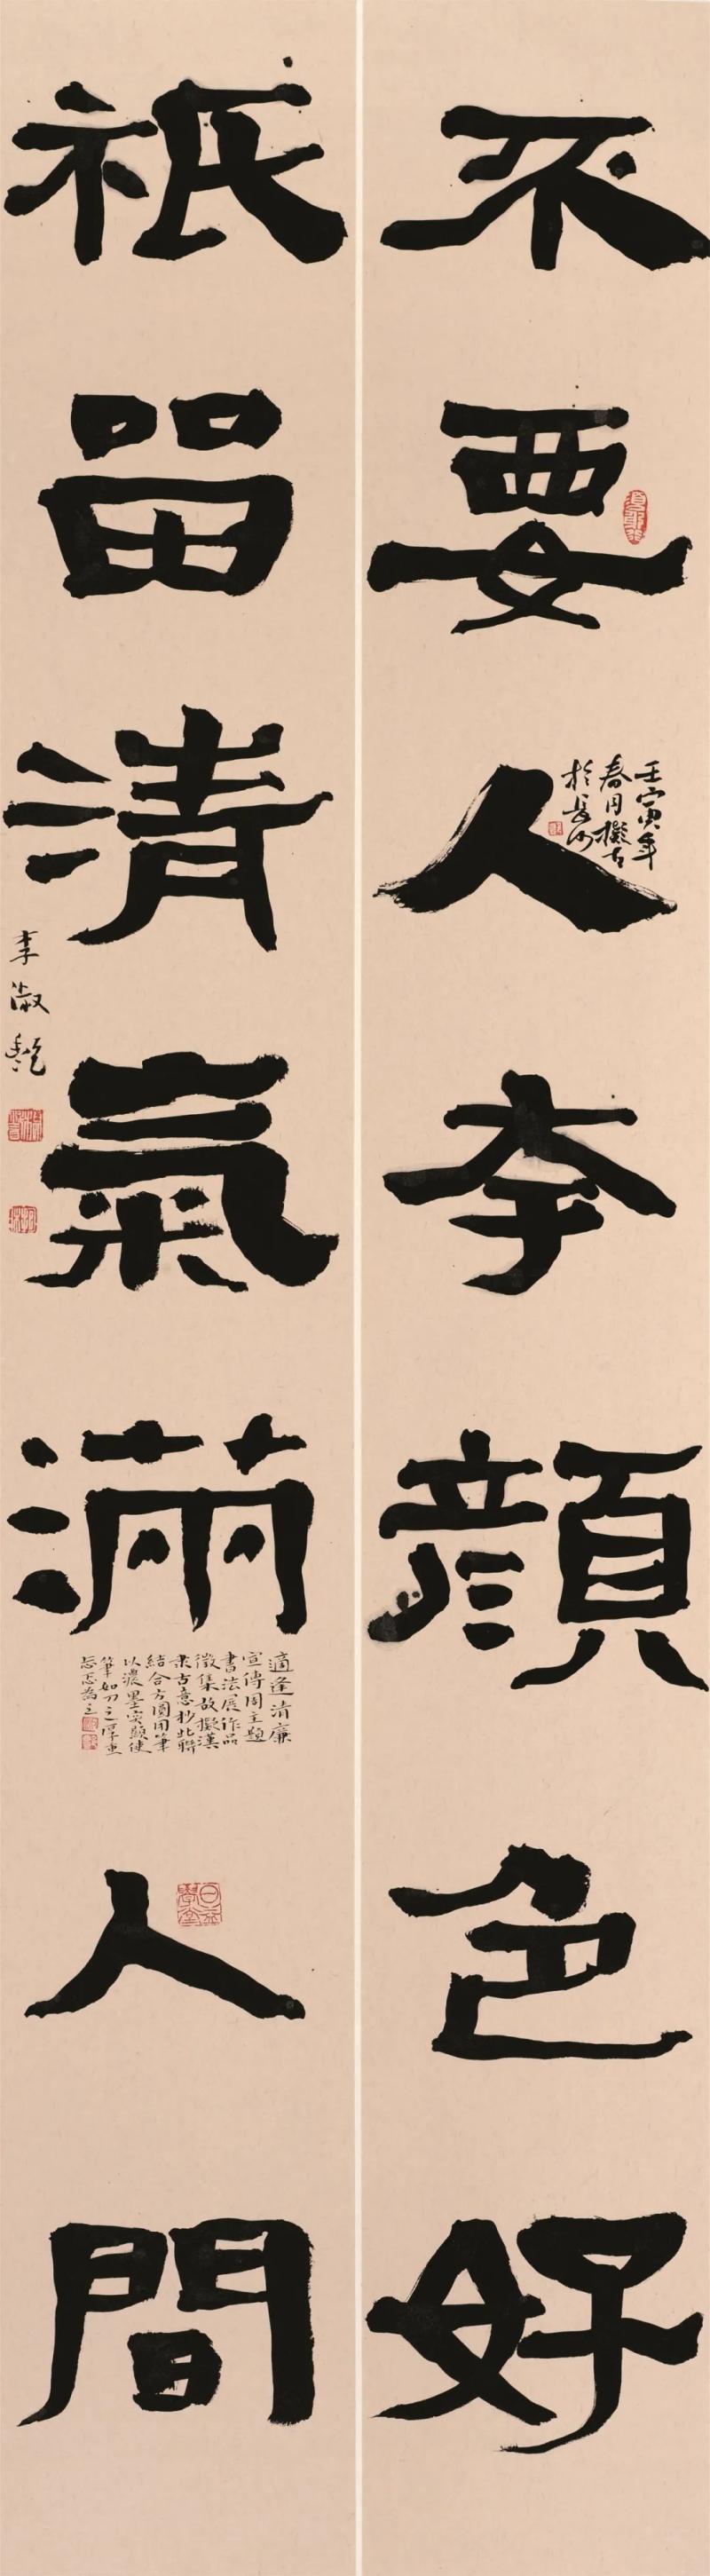 不要人夸顔色好
壬寅年
春月擬古
於長沙
祇留清氣滿人間
適逢清廉
宣傳周主題
書法展作品
徵集故擬漢
隶古意抄此聯
結合方圓用筆
以濃墨突顯使
筆如刀之厚重
忐忑為之
李淑